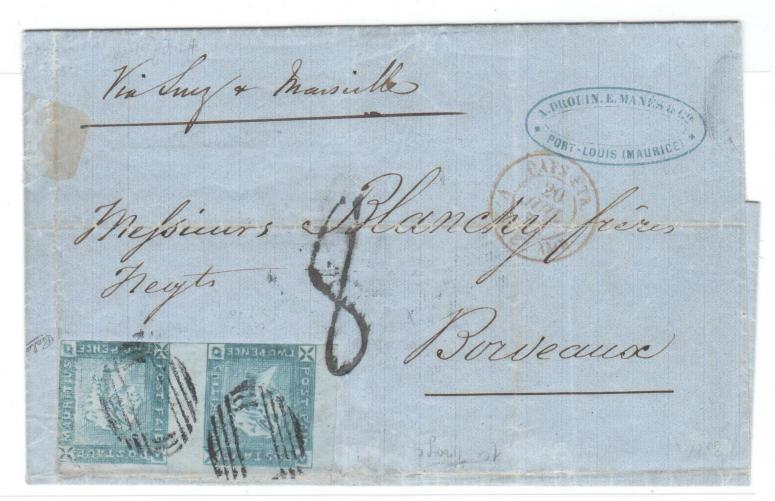 Via Suez & Marseille
A. DROUIN. E. MANÈS & Co.
* PORT-LOUIS (MAURICE) *
PAYS ÉTR.
20
Messieurs Blanchy frères
Negts
8
Bordeaux
POST PAID
TWO PENCE
MAURITIUS
POSTAGE
POST PAID
TWO PENCE